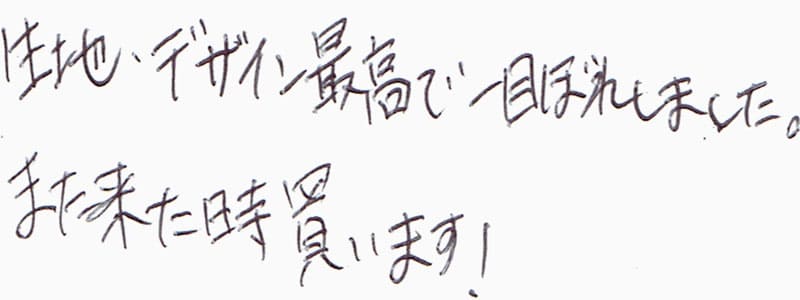 生地、デザイン最高で一目ぼれしました。
また来た時買います!